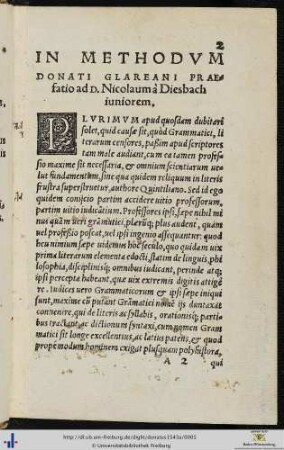 2
IN METHODVM
DONATI GLAREANI PRAE-
fatio ad D. Nicolaum à Diesbach
iuniorem.
PLVRIMVM apud quosdam dubitari
solet, quid causæ sit, quòd Grammatici, li
terarum censores, passim apud scriptores
tam male audiant, cum ea tamen profes-
sio maxime sit necessaria, & omnium scientiarum ue
lut fundamentum, sine qua quidem reliquum in literis
frustra superstruetur, authore Quintiliano. Sed id ego
quidem conijcio partim accidere uitio professorum,
partim uitio iudicātium. Professores ipsi, sæpe nihil mi
nus quàm ueri grāmatici, plærūq; plus audent, quam
uel professio poscat, uel ipsi ingenio assequantur: quod
heu nimium sæpe uidemus hoc seculo, quo quidam uix
prima literarum elementa edocti, statim de linguis, phi
losophia, disciplinisq; omnibus iudicant, perinde atq;
ipsi percepta habeant, quæ uix extremis digitis attige
re. Iudices uero Grammaticorum & ipsi sæpe iniqui
sunt, maxime cū putant Grāmatici nomē ijs duntaxat
conuenire, qui de literis ac syllabis, orationisq; parti=
bus tractant, ac dictionum syntaxi, cum nomen Gram
matici sit longe excellentius, ac latius patens, & quod
propemodum hominem exigat plusquam polyhistora,
A 2 qui
http://dl.ub.uni-freiburg.de/diglit/donatus1543a/0005
© Universitätsbibliothek Freiburg